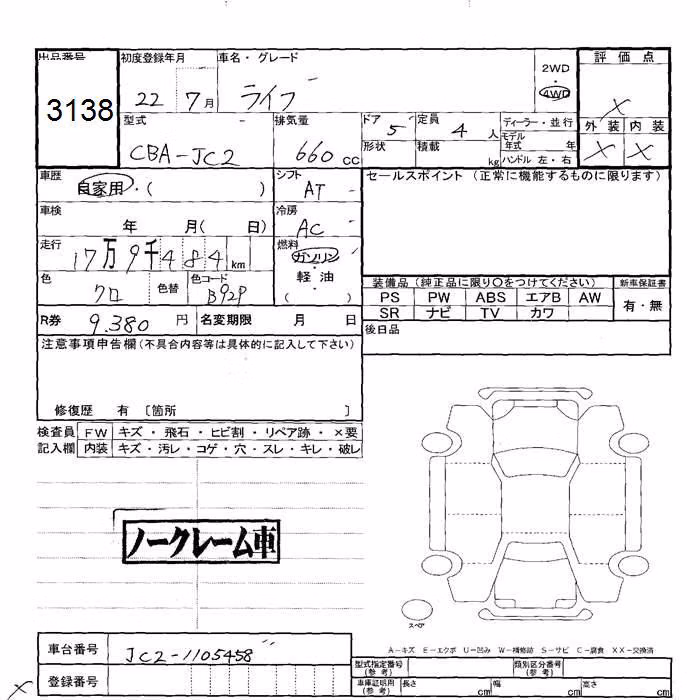 出品番号
3138
初度登録年月
22 7月
車名・グレード
ライフ
2WD
4WD
評価点
X
外装 内装
X X
型式
CBA-JC2
排気量
660 cc
ドア
5
形状
定員
4 人
積載
kg
ディーラー・並行
モデル年式 年
ハンドル 左・右
車歴
自家用・( )
シフト
AT
車検
年 月( 日)
冷房
AC
走行
17万9千484 km
燃料
ガソリン・
軽油・
( )
色
クロ
色替
色コード
B92P
R券
9.380 円
名変期限 月 日
セールスポイント(正常に機能するものに限ります)
装備品(純正品に限り〇をつけてください)
PS PW ABS エアB AW
SR ナビ TV カワ
新車保証書
有・無
後日品
注意事項申告欄(不具合内容等は具体的に記入して下さい)
修復歴 有 〔箇所 〕
検査員記入欄
FW キズ・飛石・ヒビ割・リペア跡・×要
内装 キズ・汚レ・コゲ・穴・スレ・キレ・破レ
ノークレーム車
スペア
A-キズ E-エクボ U-凹み W-補修跡 S-サビ C-腐食 XX-交換済
車台番号
JC2-1105458
登録番号
型式指定番号(参考)
類別区分番号(参考)
車庫証明用(参考)
長さ cm 幅 cm 高さ cm
X